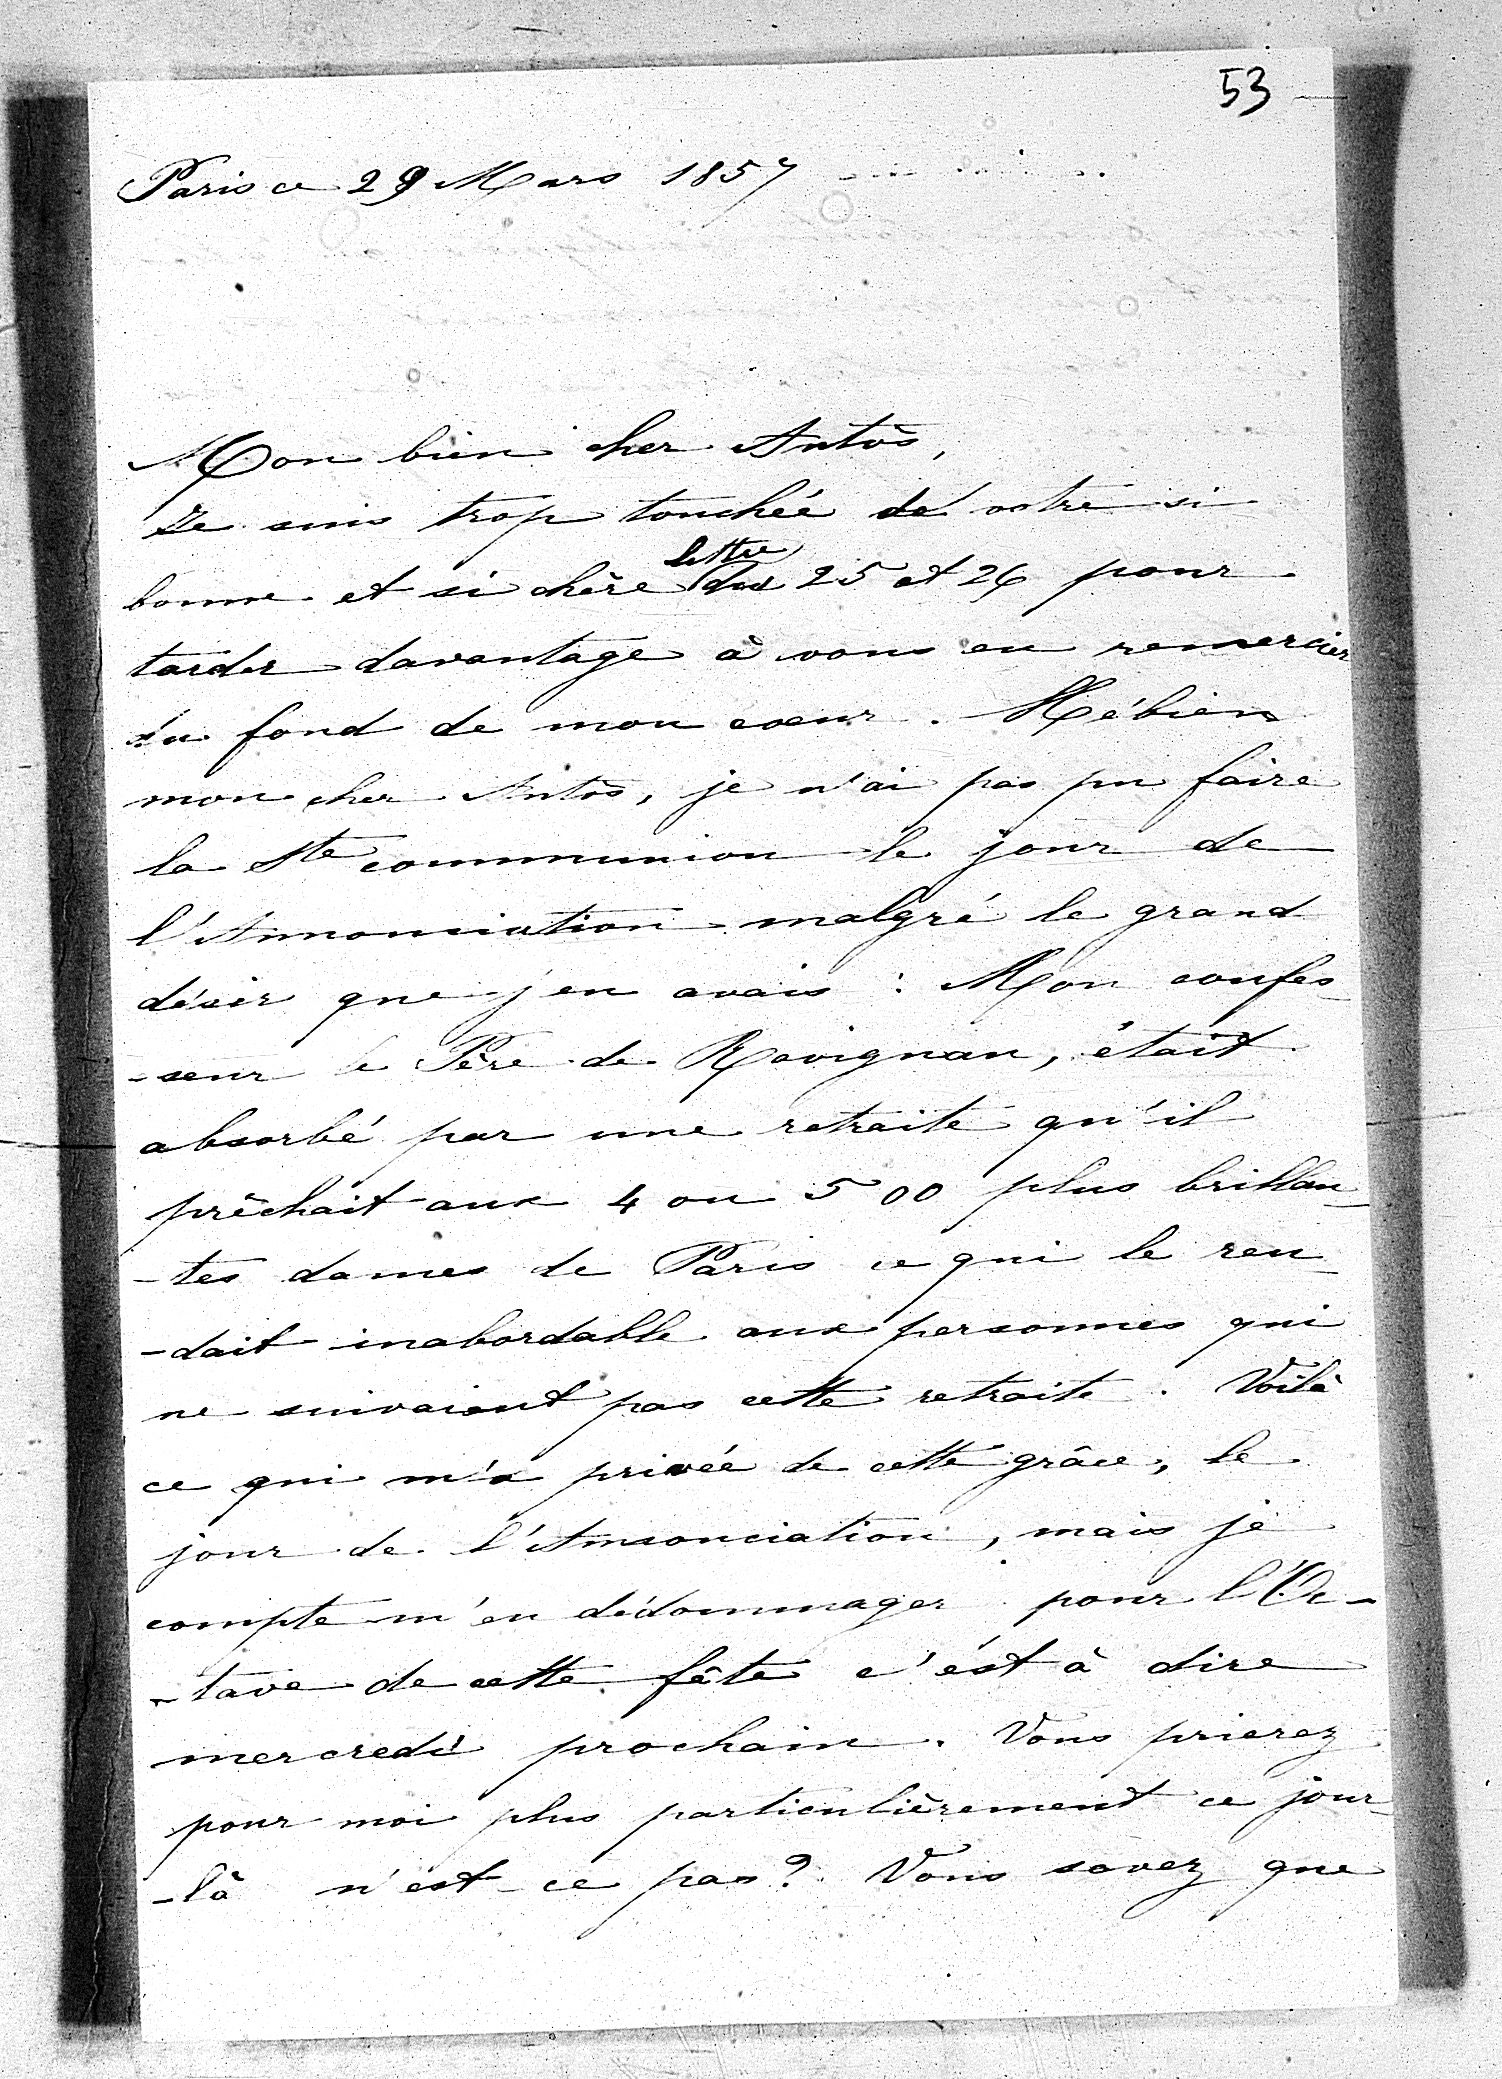 53
Paris ce 29 Mars 1857
Mon bien cher Antòs,
Je suis trop touchée de votre si
lettre
bonne et si chère des 25 et 26 pour
tarder davantage à vous en remercier
du fond de mon coeur. Hébien
mon cher Antòs, je n'ai pas pu faire
la Ste communion le jour de
l'Annonciation malgré le grand
désir que j'en avais : Mon confes-
-seur le Père de Ravignan, était
absorbé par une retraite qu'il
prêchait aux 4 ou 500 plus brillan-
-tes dames de Paris ce qui le ren-
-dait inabordable aux personnes qui
ne suivaient pas cette retraite. Voilà
ce qui m'a privée de cette grâce, le
jour de l'Annonciation, mais je
compte m'en dédommager pour l'Oc-
-tave de cette fête c'est à dire
mercredi prochain. Vous prierez
pour moi plus particulièrement ce jour-
-là n'est-ce pas? Vous savez que